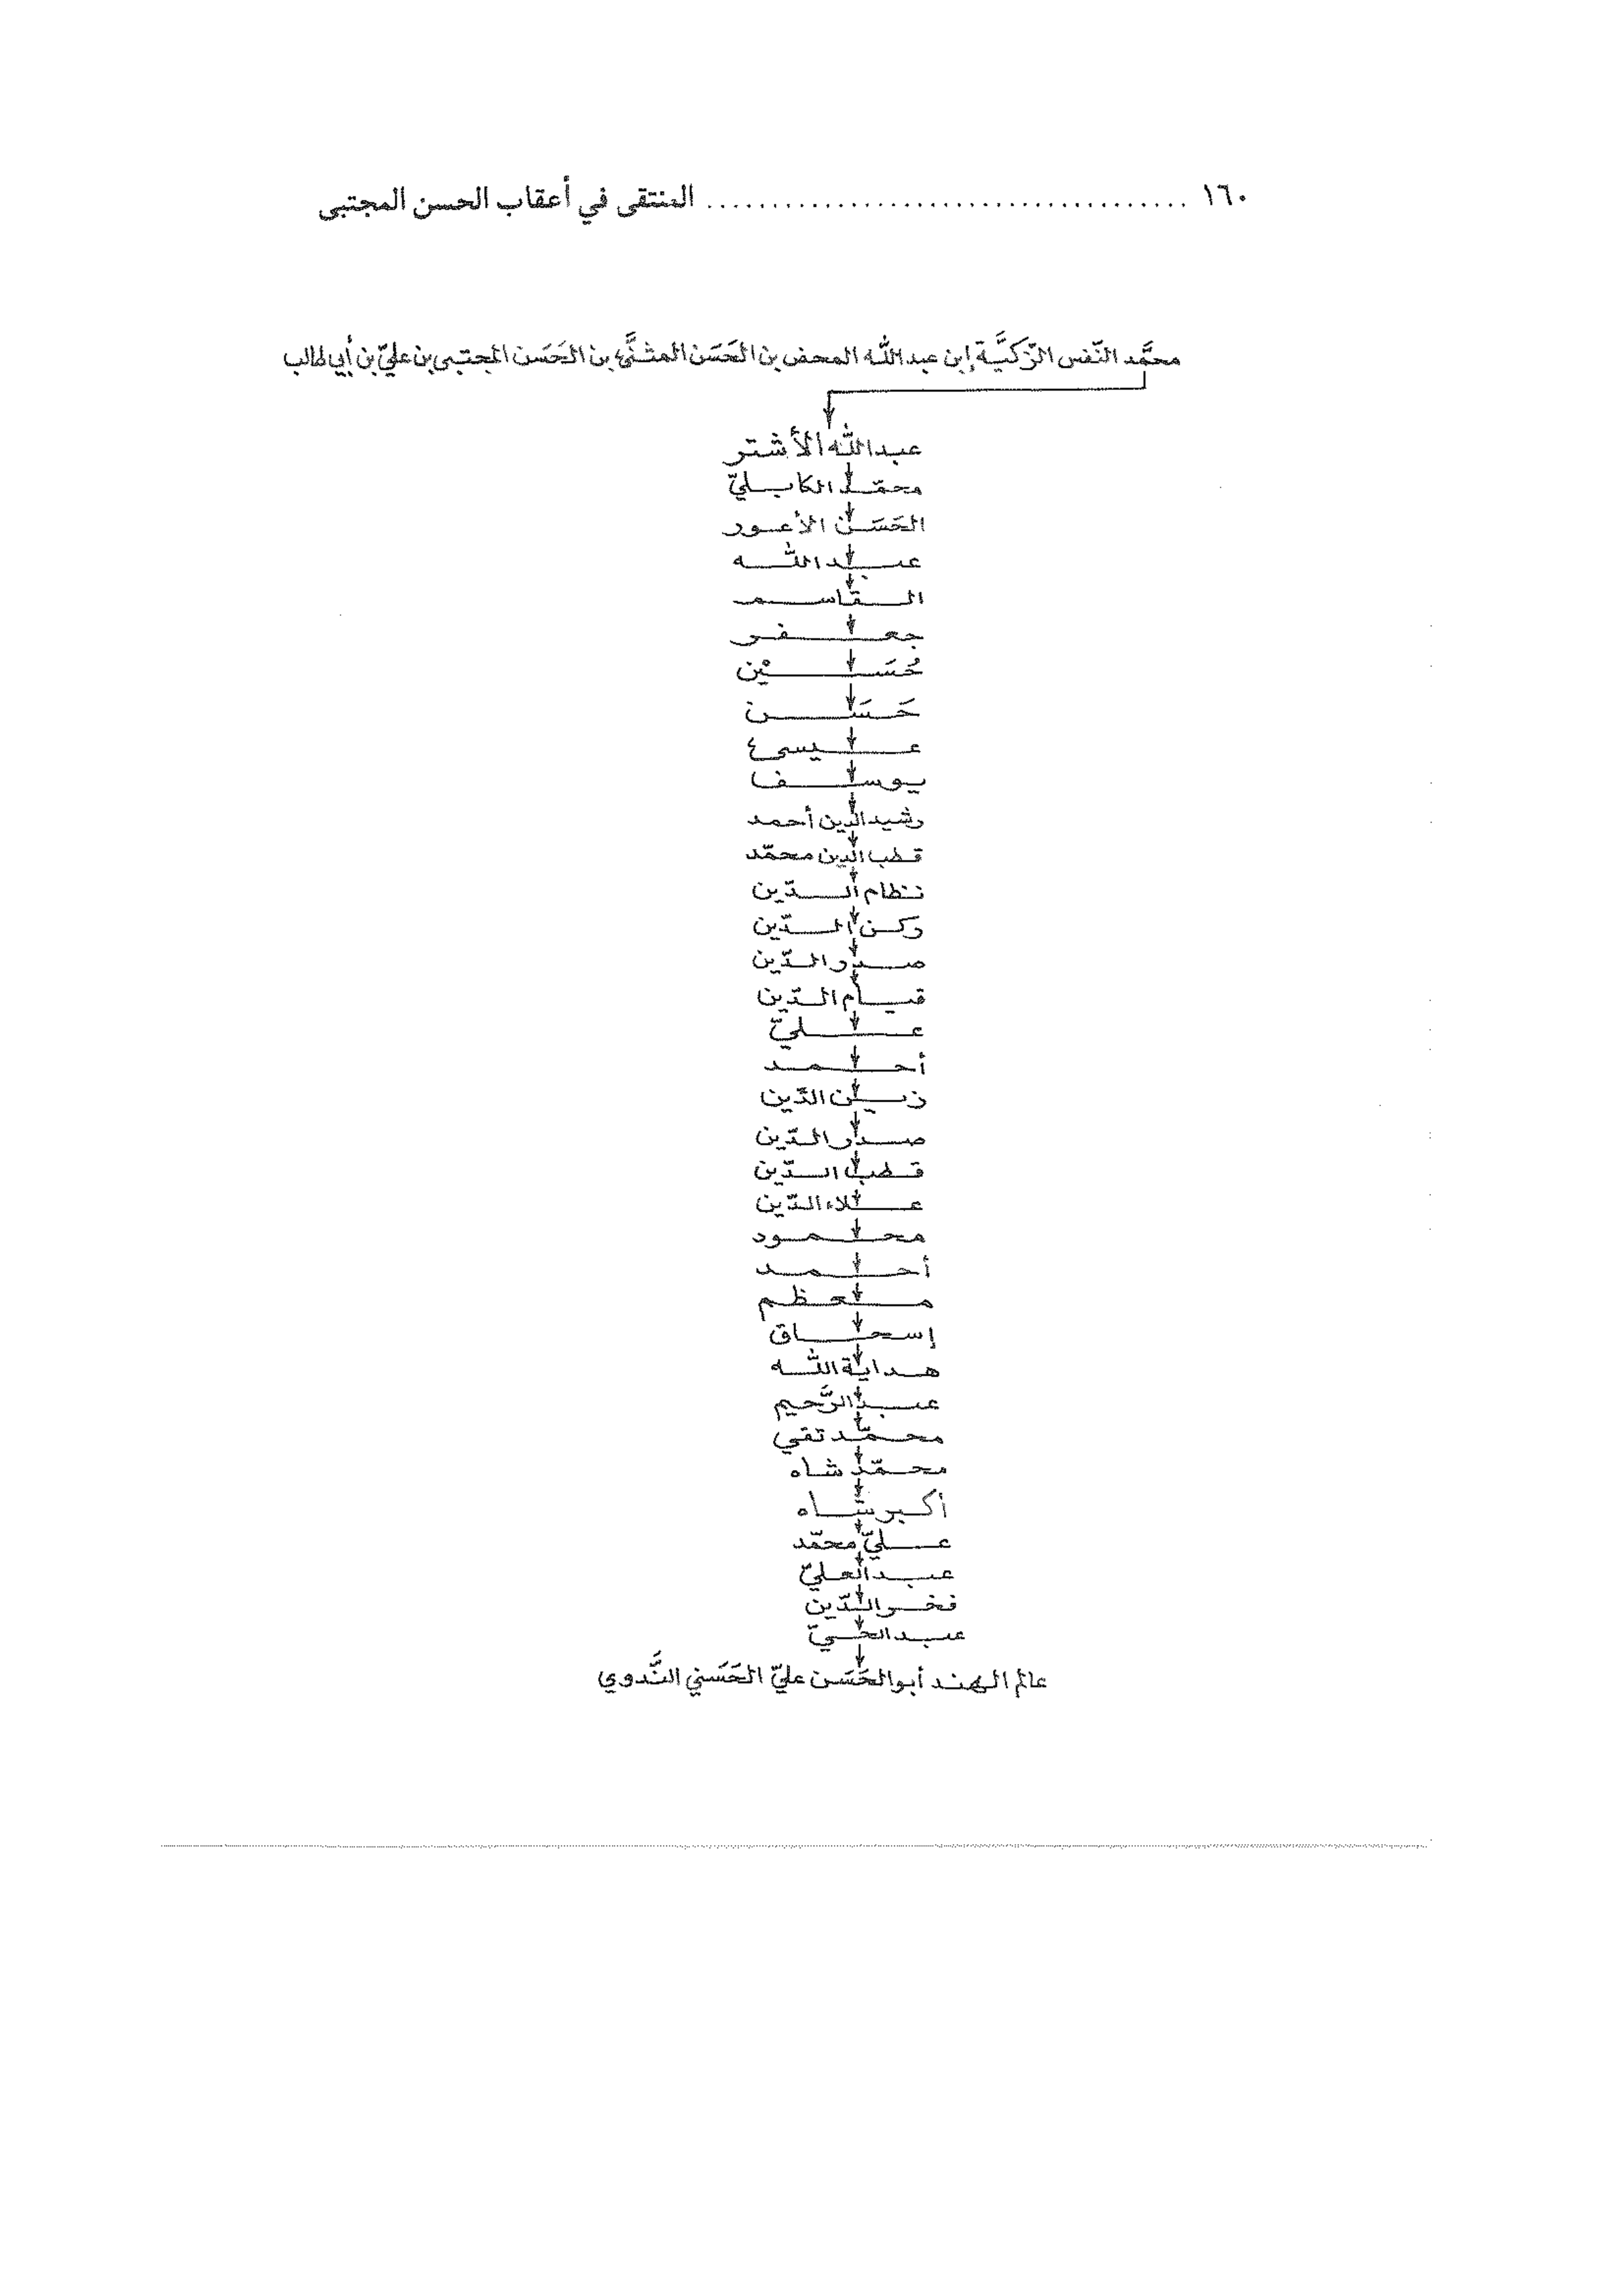 ١٦٠ ..................................... المنتقى في أعقاب الحسن المجتبى
محمَّد النّفس الزّكيَّة إبن عبد الله المحض بن الحَسَن المثنَّى بن الحَسَن المجتبى بن عليّ بن أبي طالب
عبد الله الأشتر
محمّد الكابليّ
الحَسَن الأعور
عبد الله
القاسم
جعفر
حُسَيْن
حَسَن
عيسى
يوسف
رشيد الدين أحمد
قطب الدين محمّد
نظام الدّين
ركن الدّين
صدر الدّين
قيام الدّين
عليّ
أحمد
زين الدّين
صدر الدّين
قطب الدّين
علاء الدّين
محمود
أحمد
معظم
إسحاق
هداية الله
عبد الرَّحيم
محمّد تقي
محمّد شاه
أكبر شاه
عليّ محمّد
عبد العليّ
فخر الدّين
عبد الحيّ
عالم الهند أبو الحَسَن عليّ الحَسَني النَّدوي